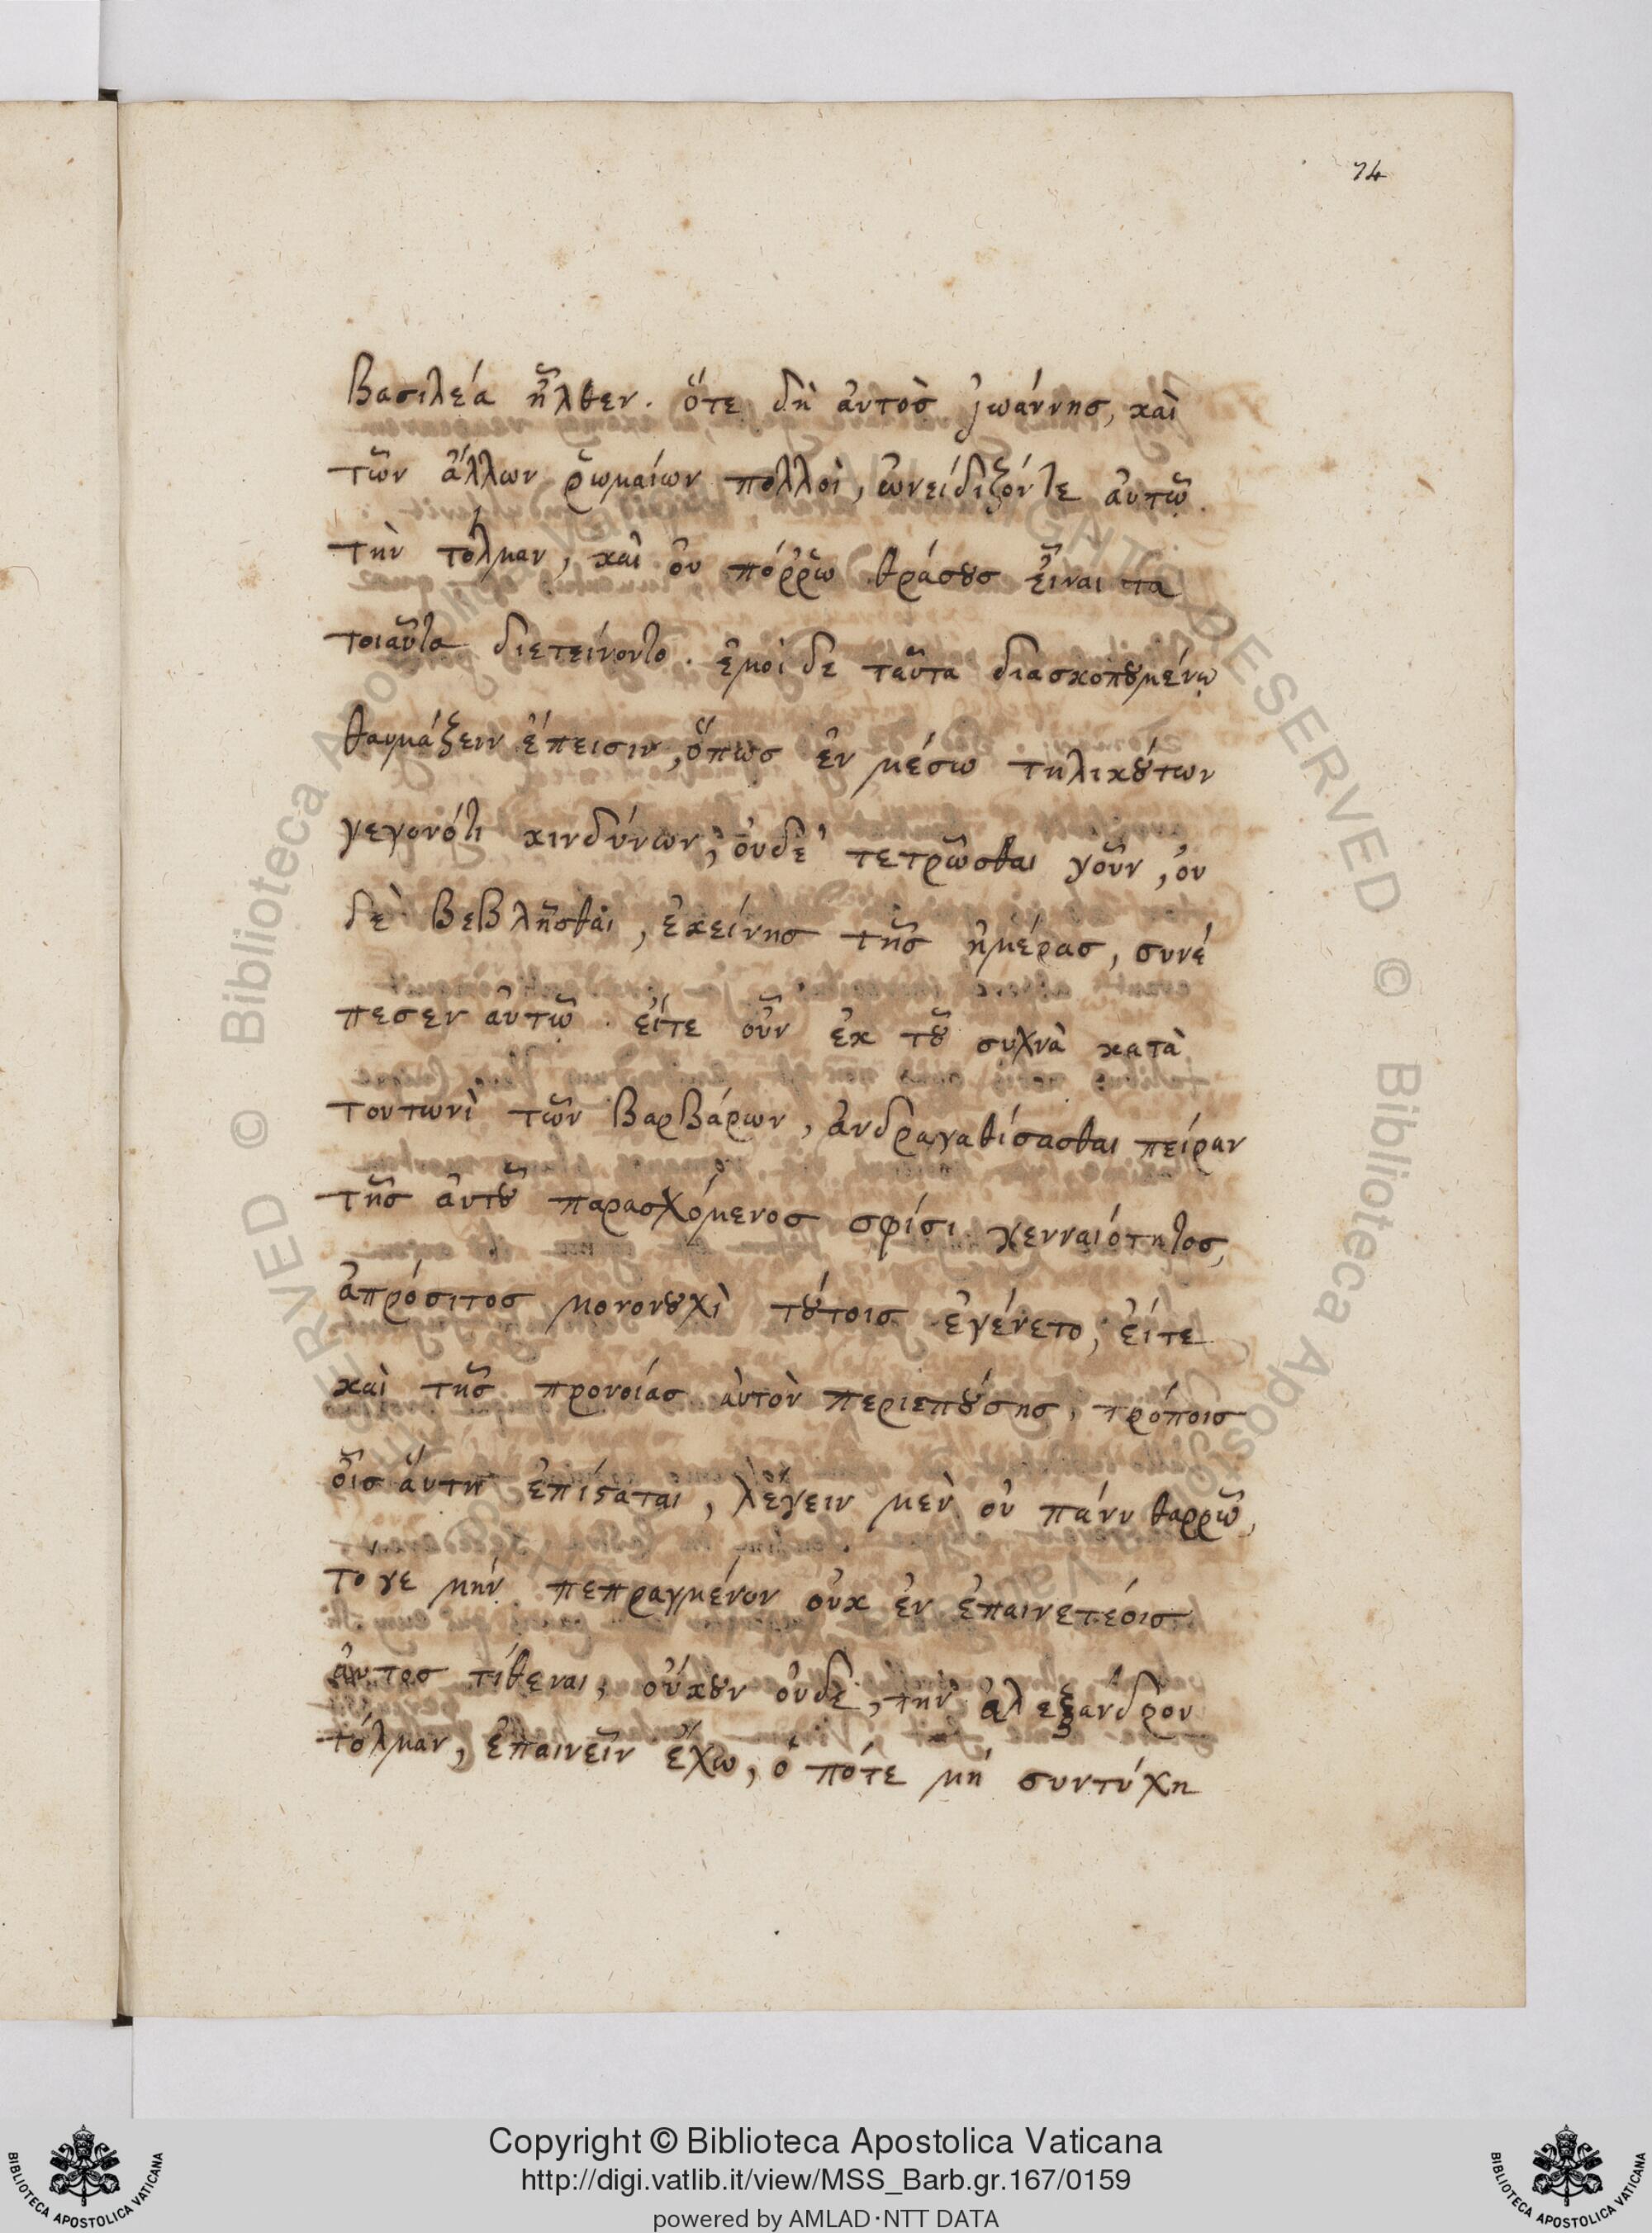 74
Βασιλέα ἦλθεν. ὅτε δὴ ἀυτὸσ ἰωάννησ, καὶ
τῶν ἄλλων ῥωμαίων πολλοὶ, ὠνείδιζόν τε ἀυτῶ
τὴν τόλμαν, καὶ ὀυ πόῤῥω θράσȣσ εἶναι τα
τοιαῦτα διετείνοντο. ἐμοὶ δε ταῦτα διασκοπȣμένω
θαυμάζειν ἔπεισιν, ὅπωσ ἐν μέσω τηλικȣ́των
γεγονότι κινδύνων, ὀυδὲ τετρῶσθαι γοῦν, ὀυ
δὲ βεβλῆσθαι, ἐκείνησ τῆσ ἡμέρασ, συνέ
πεσεν ἀυτῶ. εἴτε οὖν ἐκ τȣ͂ συχνὰ κατὰ
τουτωνὶ τῶν βαρβάρων, ἀνδραγαθίσασθαι πείραν
τῆσ ἀυτȣ͂ παρασχόμενοσ σφίσι γενναιότητοσ,
ἀπρόσιτοσ μονονȣχὶ τȣ́τοισ ἐγένετο, εἴτε
καὶ τῆσ προνοίασ ἀυτὸν περιεπȣ́σησ, τρόποισ
οἷσ ἅυτη ἐπίϛαται, λέγειν μὲν ὀυ πάνυ θαρρῶ,
το γε μήν πεπραγμένον ὀυκ ἐν ἐπαινετέοισ
ἀυτοσ τίθεναι, ὀύκȣν ὀυδὲ, τὴν ἀλεξάνδρου
τόλμαν, ἐπαινεῖν ἔχω, ὁ πότε μή συντύχη
Copyright © Biblioteca Apostolica Vaticana
http://digi.vatlib.it/view/MSS_Barb.gr.167/0159
powered by AMLAD·NTT DATA
BIBLIOTECA APOSTOLICA VATICANA
BIBLIOTECA APOSTOLICA VATICANA